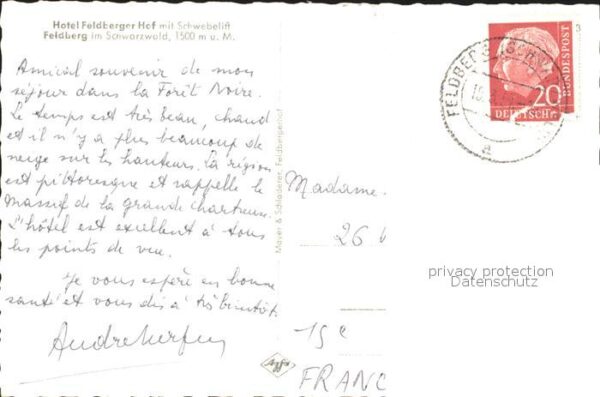 Hotel Feldberger Hof mit Schwebelift
Feldberg im Schwarzwald, 1500 m u. M.
Amical souvenir de mon
séjour dans la Forêt Noire.
Le temps est très beau, chaud
et il n'y a plus beaucoup de
neige sur les hauteurs. La région
est pittoresque et rappelle le
Massif de la grande Chartreuse.
L'hôtel est excellent à tous
les points de vue.
Je vous espère en bonne
santé et vous dis à très bientôt.
Mayer & Schladerer, Feldbergerhof
Agfa
3
FELDBERG (SCHW
a
20
DEUTSCHE
BUNDESPOST
Madame.
26
15e
FRANC
privacy protection
Datenschutz